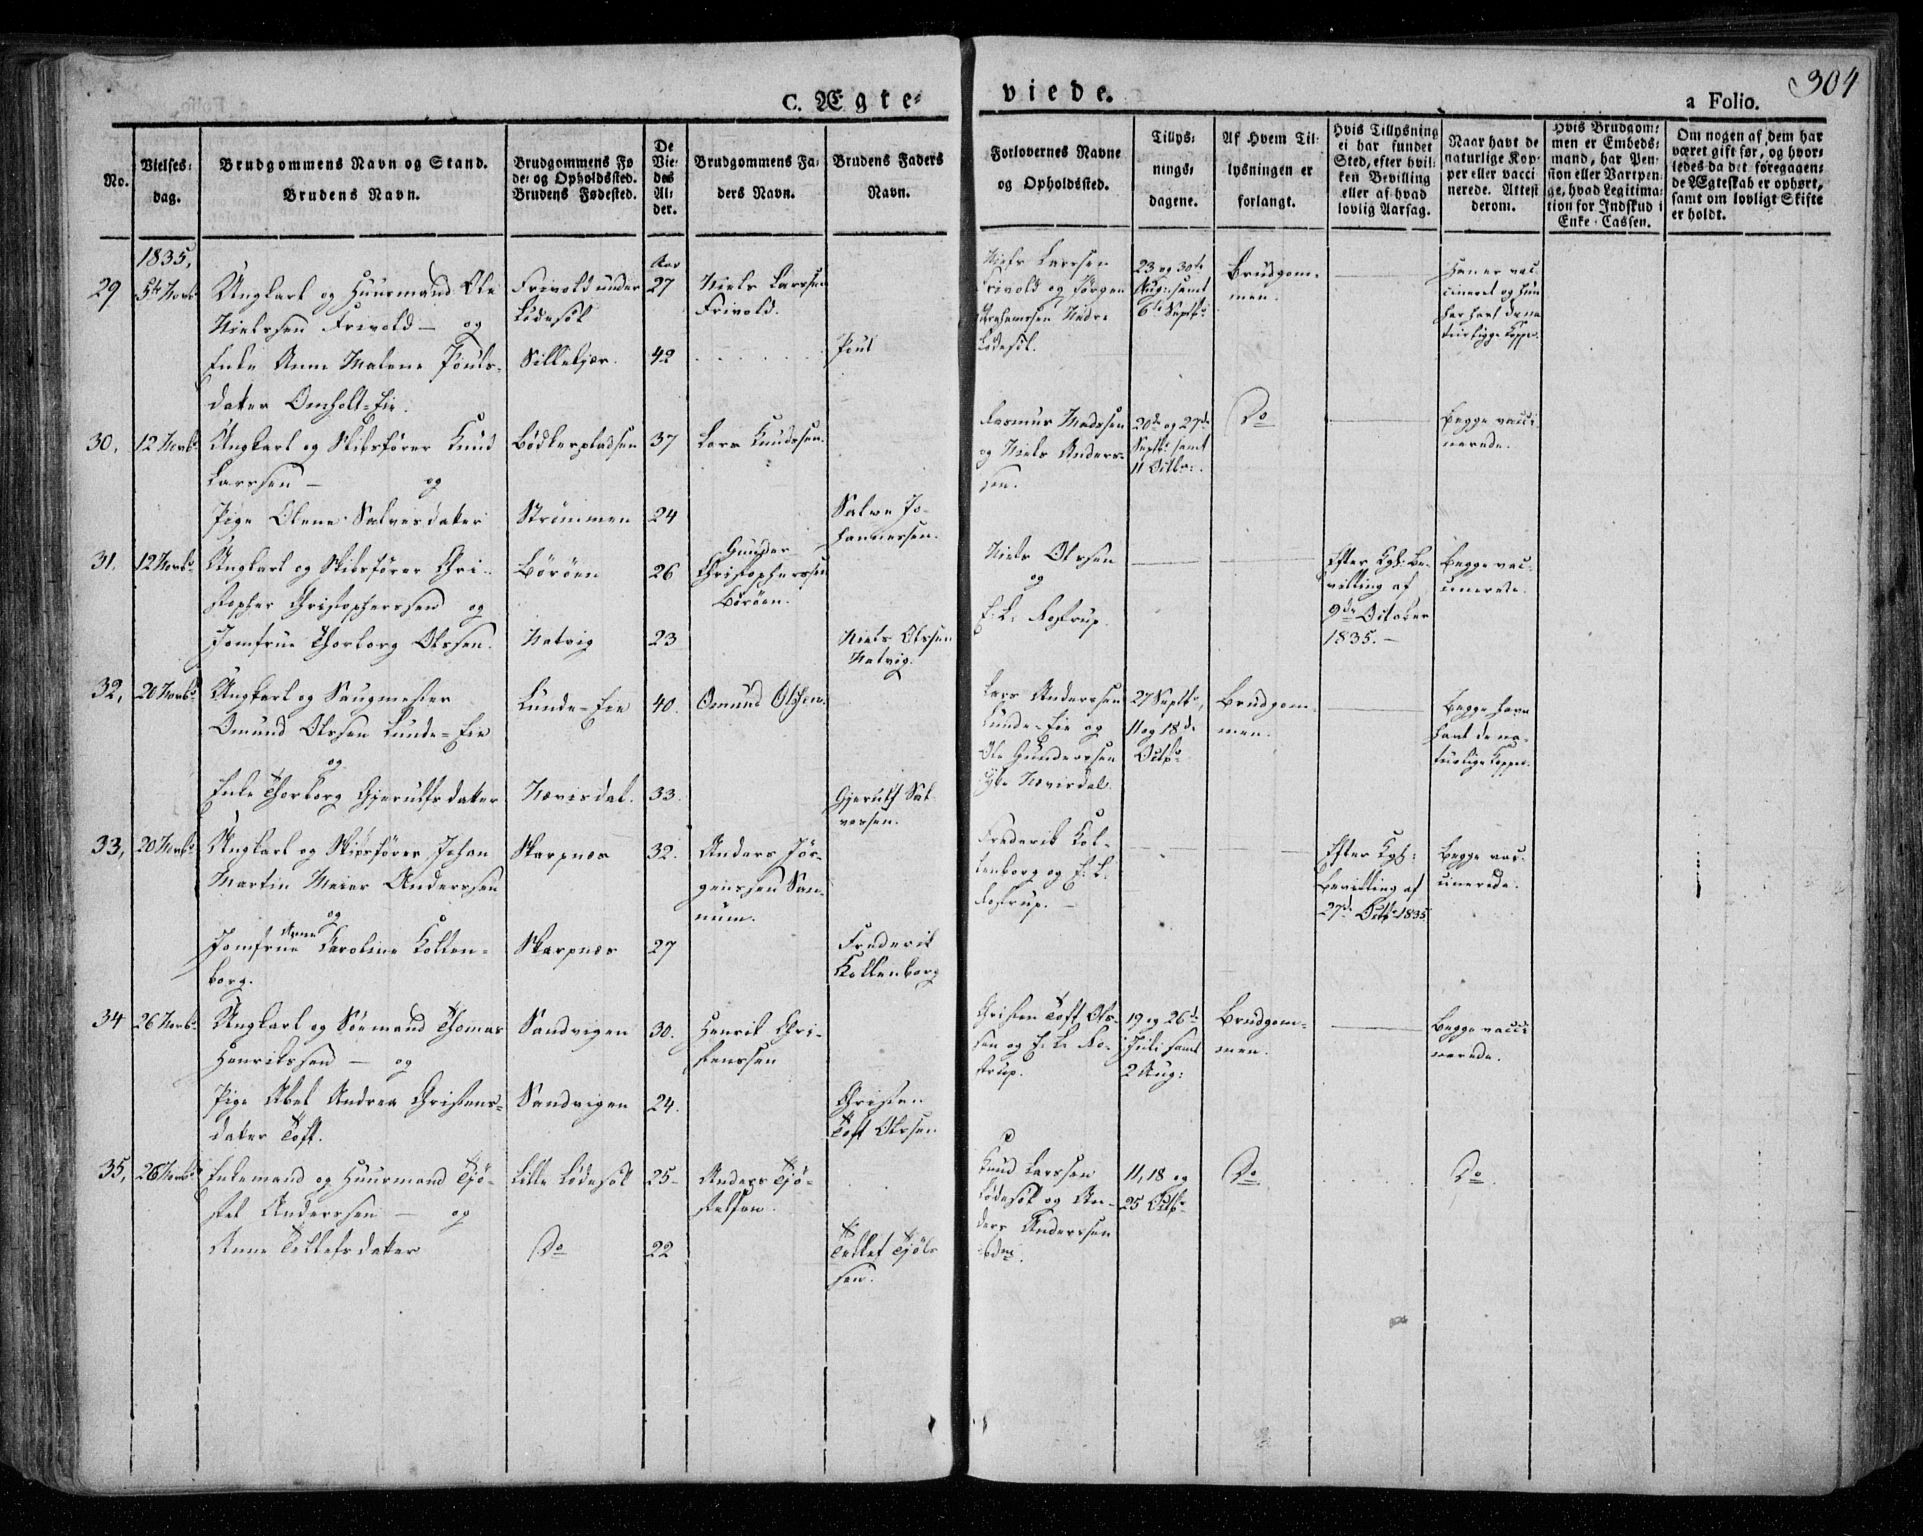 304
C. Ægte=
viede.
a Folio.
No.
Vielses=
dag.
Brudgommens Navn og Stand.
Brudens Navn.
Brudgommens Fø
de= og Opholdssted.
Brudens Fødested.
De
Vie=
des
Al=
der.
Brudgommens Fa=
ders Navn.
Brudens Faders
Navn.
Forlovernes Navne
og Opholdssted.
Tillys=
nings=
dagene.
Af Hvem Til=
lysningen er
forlangt.
Hvis Tillysning
ei har fundet
Sted, efter hvil=
ken Bevilling
eller af hvad
lovlig Aarsag.
Naar havt de
naturlige Kop=
per eller vacci
nerede. Attest
derom.
Hvis Brudgom=
men er Embeds=
mand, har Pen=
sion eller Vartpen=
ge, hvad Legitima=
tion for Indskud i
Enke=Cassen.
Om nogen af dem har
været gift før, og hvor=
ledes da det foregaaen=
de Ægteskab er ophørt,
samt om lovligt Skifte
er holdt.
1835,
Aar
29
5te Novbr
Ungkarl og Huusmand Ole
Nielssen Frivold — og
Enke Anne Malene Pouls=
dater Omholt=Eie.
Frivold under
Lødesøl
Sillekjær.
27
42
Niels Larssen
Frivold.
Poul
Niels Larssen
Frivold og Jørgen
Abrahamssen Nedre
Lødesøl.
23 og 30te
Aug: samt
6te Septbr
Brudgom=
men.
Han er vac=
cineret og hun
har havt de na
turlige Kopper.
30.
12 Novbr
Ungkarl og Skibsfører Knud
Larssen — og
Pige Olene Salvesdater
Bødkerpladsen
Strømmen
37
24
Lars Knudssen.
Salve Jo=
hannessen.
Rasmus Madssen
og Niels Anders=
sen.
20de og 27de
Septbr samt
11 Octbr.
Do
Begge vacci
nerede.
31.
12 Novbr
Ungkarl og Skibsfører Chri=
stopher Christopherssen og
Jomfrue Thorborg Olssen.
Borøen
Natvig
26
23
Gunder
Christopherssen
Borøen.
Niels Olssen
Natvig.
Niels Olssen
og
E. L. Rostrup.
Efter Kgl: Be=
villing af
9de October
1835. —
Begge vac=
cinerede.
32,
20 Novbr
Ungkarl og Saugmester
Omund Olssen Lunde=Eie
og
Enke Thorborg Gjerulfsdater
Lunde=Eie
Nævisdal.
40.
33.
Omund Olssen.
Gjerulf Sal
vessen.
Lars Anderssen
Lunde=Eie og
Ole Gunderssen
Nævisdal.
27 Septbr,
11 og 18de
Octbr
Brudgom=
men.
Begge have
havt de na=
turlige Kopper.
33,
20 Novbr
Ungkarl og Skibsfører Johan
Martin Meier Anderssen
og
Jomfrue Anne Karoline Kollen=
borg.
Skarpnæs
Skarpnæs
32.
27
Anders Jør=
genssen San=
num.
Frederik
Kollenborg
Frederik Kol=
lenborg og E. L.
Rostrup. —
Efter Kgl:
Bevilling af
27de Octbr 1835
Begge vac=
cinerede.
34
26 Novbr
Ungkarl og Søemand Thomas
Henrikssen — og
Pige Abel Andrea Christens=
dater Toft.
Sandvigen
Sandvigen
30.
24.
Henrik Chri=
stenssen
Christen
Toft Olssen
Christen Toft Ols=
sen og E. L. Ro=
strup.
19 og 26de
Juli samt
2 Aug:
Brudgom=
men.
Begge vacci
nerede.
35,
26 Novbr
Enkemand og Huusmand Tjø=
stel Anderssen — og
Anne Tellefsdater
Lille Lødesøl
Do
25
22
Anders Tjø=
stelsen.
Tellef Tjøls
sen.
Knud Larssen
Lødesøl og An=
ders Anderssen
ibdm.
11, 18 og
25 Octbr
Do
Do